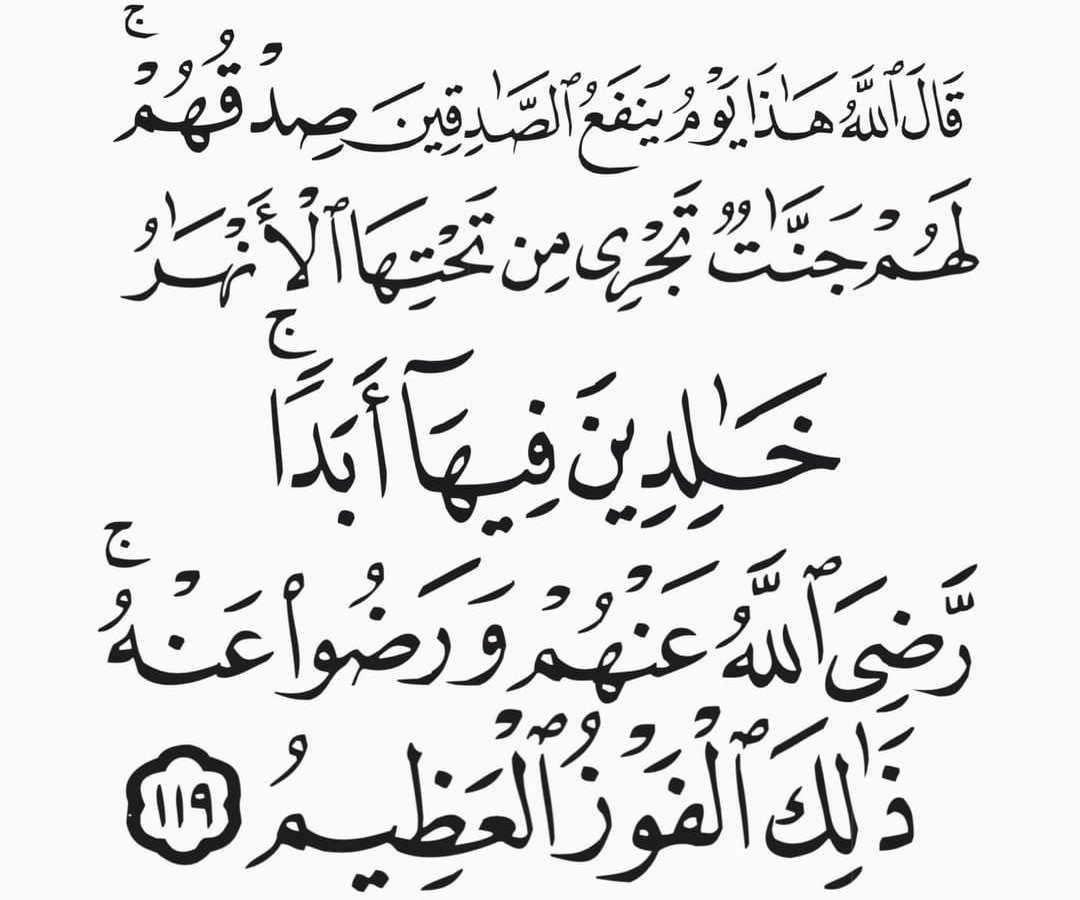 قَالَ ٱللَّهُ هَـٰذَا يَوْمُ يَنفَعُ ٱلصَّـٰدِقِينَ صِدْقُهُمْ ۚ
لَهُمْ جَنَّـٰتٌ تَجْرِى مِن تَحْتِهَا ٱلْأَنْهَـٰرُ
خَـٰلِدِينَ فِيهَآ أَبَدًا ۚ
رَّضِىَ ٱللَّهُ عَنْهُمْ وَرَضُوا۟ عَنْهُ ۚ
ذَٰلِكَ ٱلْفَوْزُ ٱلْعَظِيمُ ١١٩